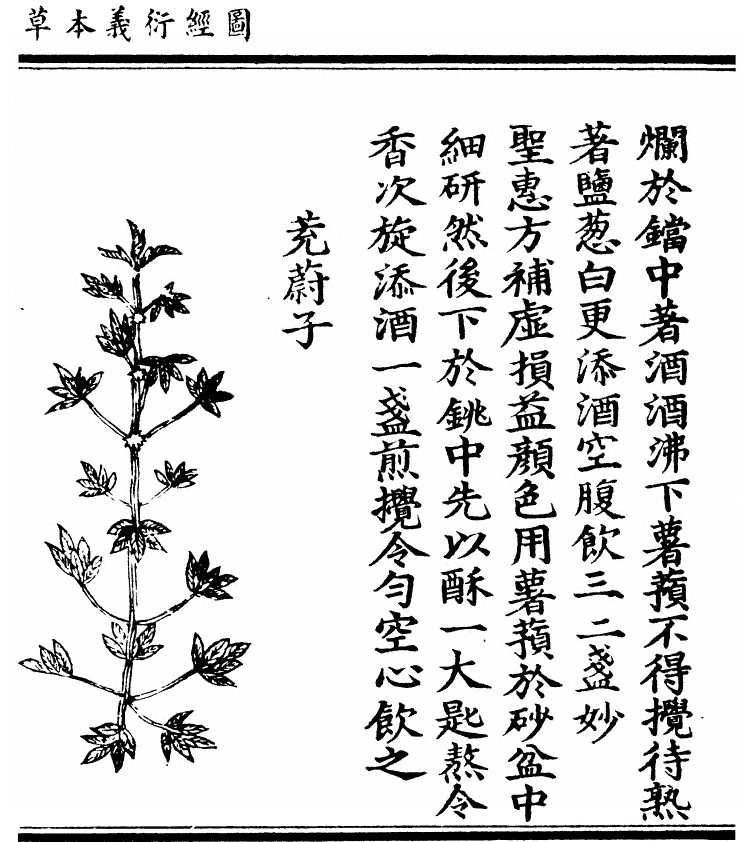 圖經衍義本草
爛於鐺中著酒酒沸下薯蕷不得攪待熟
著鹽葱白更添酒空腹飲三二盞妙
聖惠方補虛損益顏色用薯蕷於砂盆中
細研然後下於銚中先以酥一大匙熬令
香次旋添酒一盞煎攪令勻空心飲之
茺蔚子